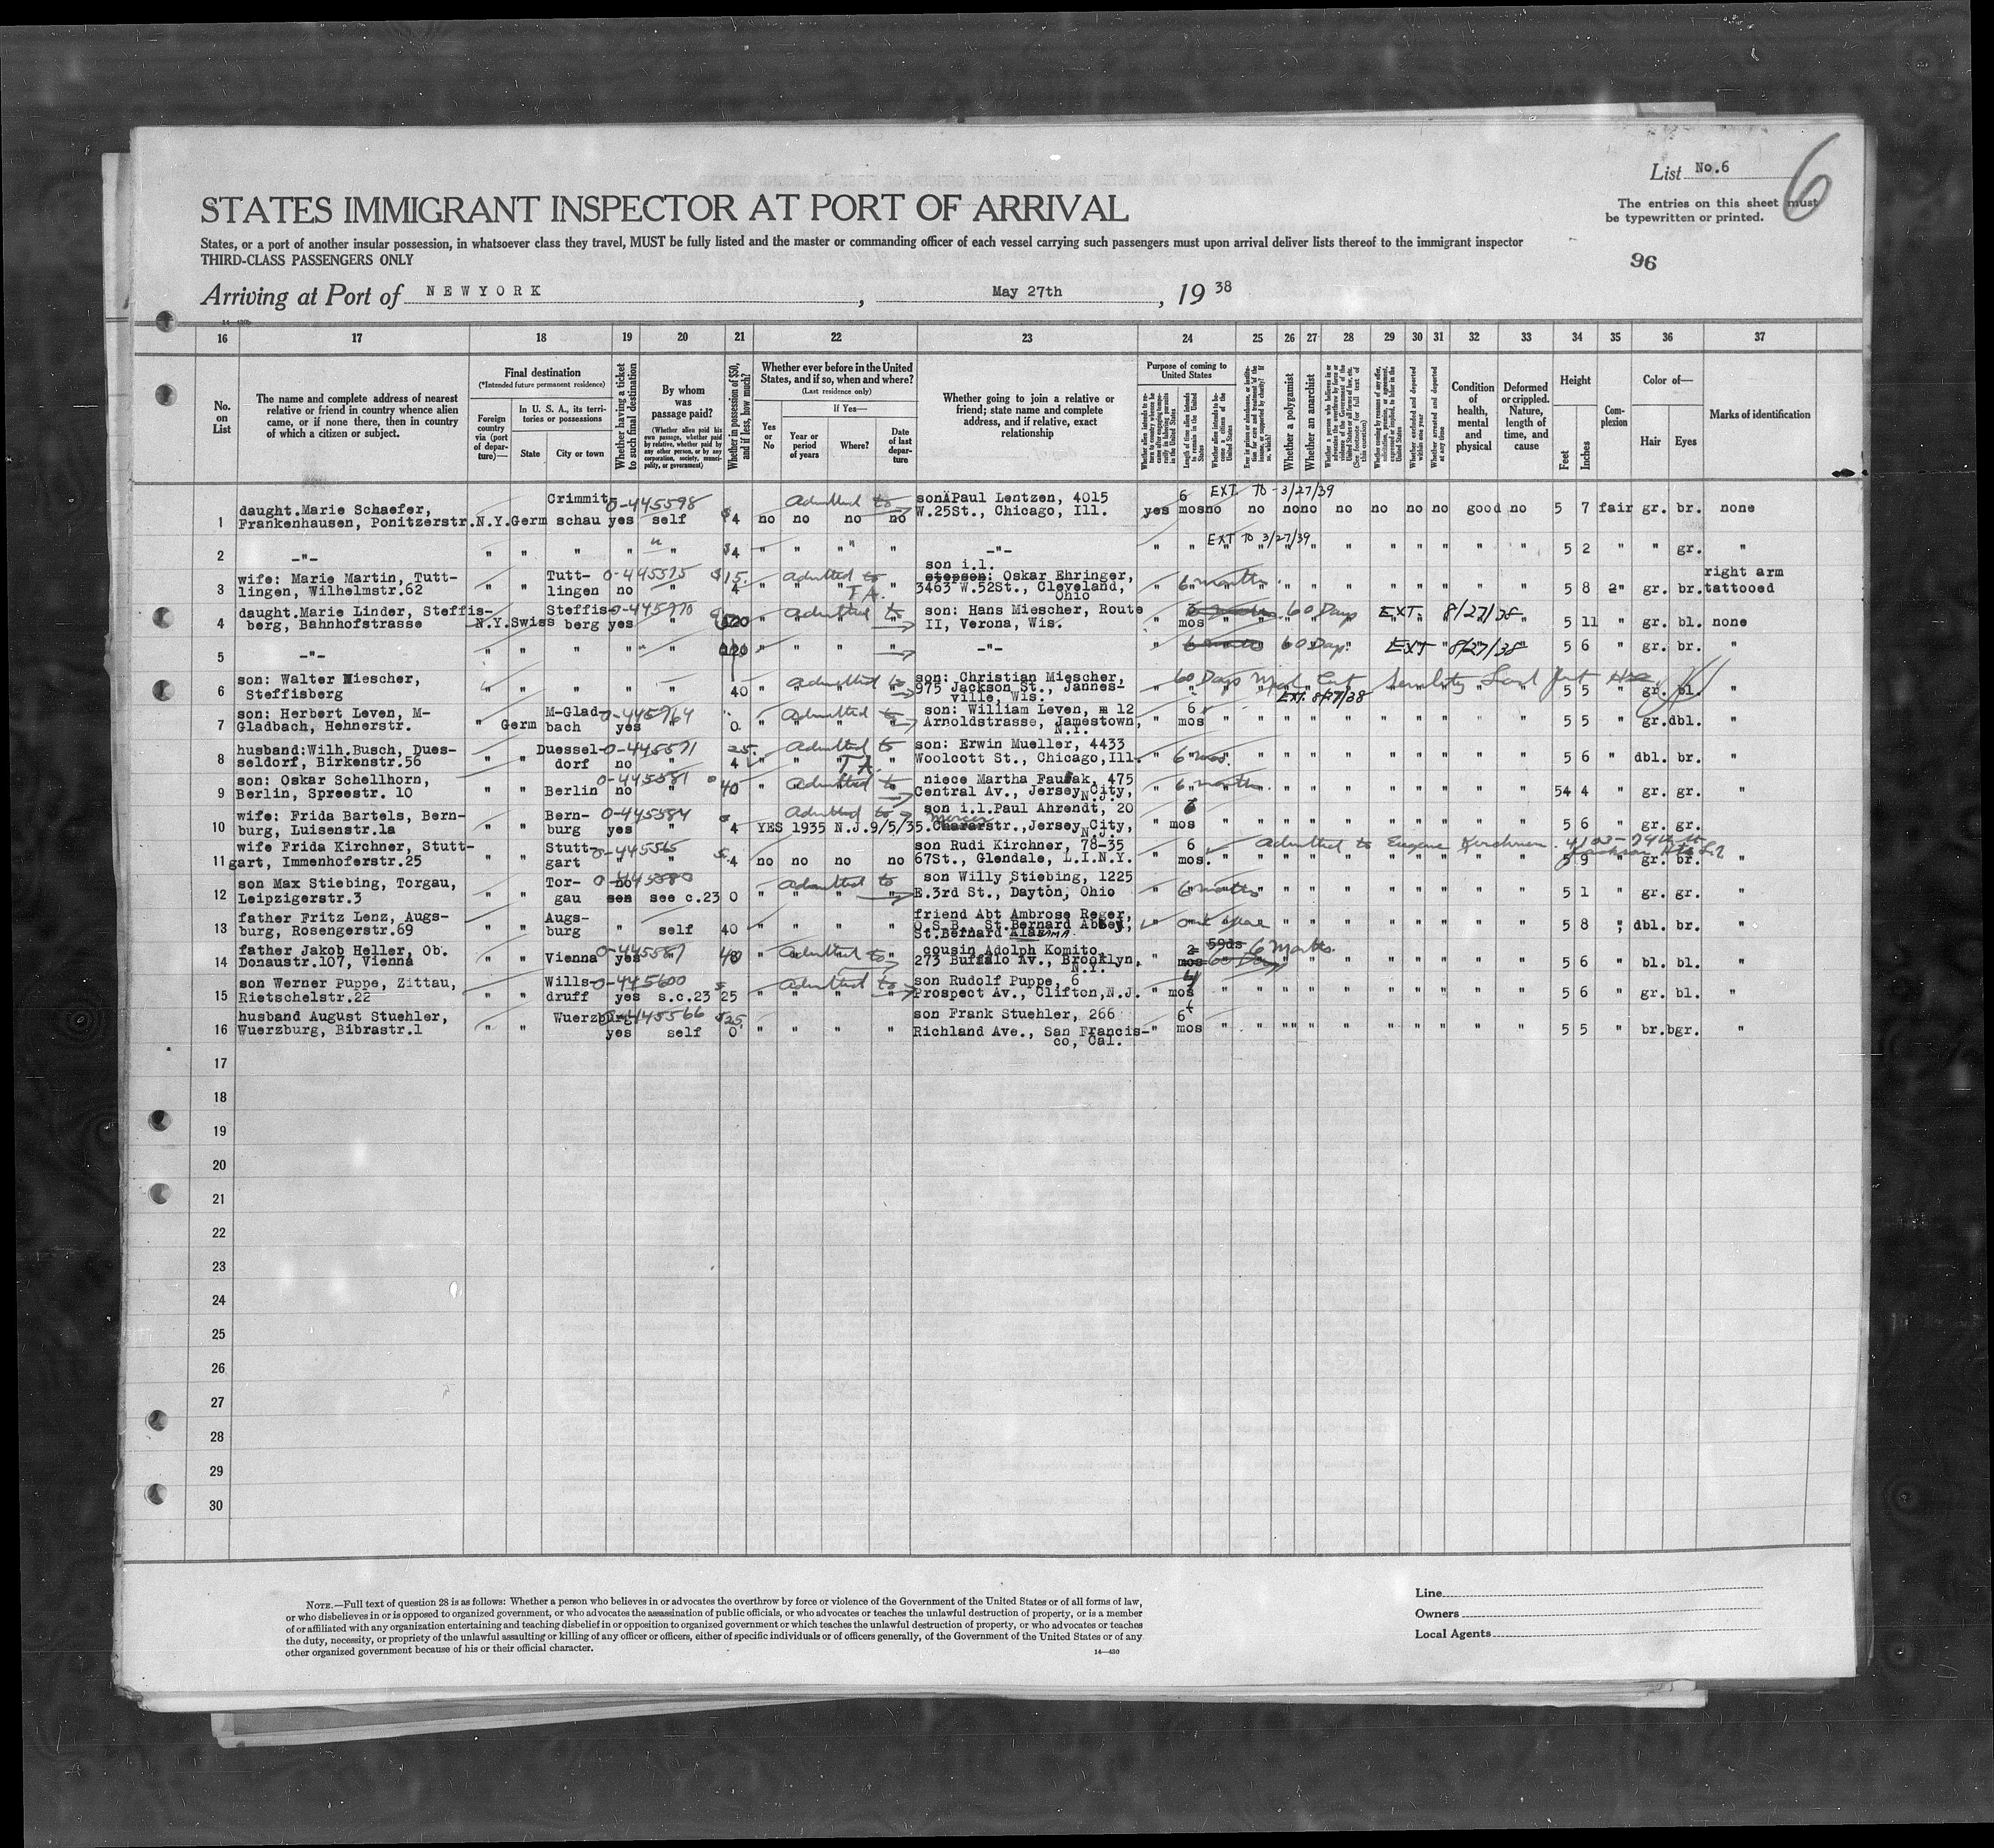 List No.6
6
STATES IMMIGRANT INSPECTOR AT PORT OF ARRIVAL
The entries on this sheet must
be typewritten or printed.
States, or a port of another insular possession, in whatsoever class they travel, MUST be fully listed and the master or commanding officer of each vessel carrying such passengers must upon arrival deliver lists thereof to the immigrant inspector
THIRD-CLASS PASSENGERS ONLY
96
Arriving at Port of NEWYORK, May 27th, 1938
16 17 18 19 20 21 22 23 24 25 26 27 28 29 30 31 32 33 34 35 36 37
No. on List
The name and complete address of nearest relative or friend in country whence alien came, or if none there, then in country of which a citizen or subject.
Final destination
(*Intended future permanent residence)
Foreign country via (port of departure)—
In U. S. A., its territories or possessions
State
City or town
Whether having a ticket to such final destination
By whom was passage paid?
(Whether alien paid his own passage, whether paid by relative, whether paid by any other person, or by any corporation, society, municipality, or government)
Whether in possession of $50, and if less, how much?
Whether ever before in the United States, and if so, when and where?
(Last residence only)
Yes or No
If Yes—
Year or period of years
Where?
Date of last departure
Whether going to join a relative or friend; state name and complete address, and if relative, exact relationship
Purpose of coming to United States
Length of time alien intends to remain in the United States
Whether alien intends to become a citizen of the United States
Whether a polygamist
Whether an anarchist
Whether excluded and deported within one year
Whether arrested and deported at any time
Condition of health, mental and physical
Deformed or crippled. Nature, length of time, and cause
Height
Feet
Inches
Complexion
Color of—
Hair
Eyes
Marks of identification
1 daught.Marie Schaefer, Frankenhausen, Ponitzerstr. N.Y. Germ Crimmitschau yes 0-445598 self $4 no no no no Admitted to son Paul Lentzen, 4015 W.25St., Chicago, Ill. yes 6 mos no EXT TO 3/27/39 no no no no no no no good no 5 7 fair gr. br. none
2 -"- " " " " " $4 " " " " -"- " " EXT TO 3/27/39 " " " " " " " " " 5 2 " " gr. "
3 wife: Marie Martin, Tuttlingen, Wilhelmstr.62 " " Tuttlingen no 0-445575 " $15. 4 " Admitted to T A. son i.l. stepson: Oskar Ehringer, 3463 W.52St., Cleveland, Ohio " 6 months " " " " " " " " " 5 8 " gr. br. right arm tattooed
4 daught.Marie Linder, Steffisberg, Bahnhofstrasse N.Y. Swiss Steffisberg yes 0-445970 " " Admitted to son: Hans Miescher, Route II, Verona, Wis. " mos 60 Days EXT. 8/27/38 5 11 " gr. bl. none
5 -"- " " " " " " " " " " -"- " 6 months 60 Days EXT 8/27/38 5 6 " gr. br. "
6 son: Walter Miescher, Steffisberg " " " " " 40 " Admitted to son: Christian Miescher, 975 Jackson St., Jannesville, Wis. 60 Days Med Cert EXT. 8/27/38 5 5 " gr. bl. "
7 son: Herbert Leven, M-Gladbach, Hehnerstr. " Germ M-Gladbach yes 0-445964 0 " Admitted to son: William Leven, 12 Arnoldstrasse, Jamestown, N.Y. " 6 mos " " " " " " " " " 5 5 " gr. dbl. "
8 husband:Wilh.Busch, Duesseldorf, Birkenstr.56 " " Duesseldorf no 0-445571 " 25. 4 " Admitted to T A. son: Erwin Mueller, 4433 Woolcott St., Chicago, Ill. " 6 mos. " " " " " " " " " 5 6 " dbl. br. "
9 son: Oskar Schellhorn, Berlin, Spreestr. 10 " " Berlin no 0-445581 " 40 " Admitted to niece Martha 475 Central Av., Jersey City, N.J. " 6 months " " " " " " " " " 5 4 4 " gr. gr. "
10 wife: Frida Bartels, Bernburg, Luisenstr.1a " " Bernburg yes 0-445584 " 4 YES 1935 N.J. 9/5/35. Admitted to son i.l.Paul Ahrendt, 20 Mercer Chararstr., Jersey City, N.J. " 6 mos " " " " " " " " " 5 6 " gr. gr. "
11 wife Frida Kirchner, Stuttgart, Immenhoferstr.25 " " Stuttgart " 0-445565 " 4 no no no no son Rudi Kirchner, 78-35 67St., Glendale, L.I.N.Y. " 6 mos. Admitted to Eugene Kirchner " " " " " " " " " 5 9 " gr. br. "
12 son Max Stiebing, Torgau, Leipzigerstr.3 " " Torgau see c.23 0 " Admitted to son Willy Stiebing, 1225 E.3rd St., Dayton, Ohio " 6 months " " " " " " " " " 5 1 " gr. gr. "
13 father Fritz Lenz, Augsburg, Rosengerstr.69 " " Augsburg " self 40 " " " " friend Abt Ambrose Reger, O.S.B., St.Bernard Abbey, St.Bernard Alabama " one year " " " " " " " " " 5 8 " dbl. br. "
14 father Jakob Heller, Ob. Donaustr.107, Vienna " " Vienna yes 0-445587 " 40 " Admitted to cousin Adolph Komito, 273 Buffalo Av., Brooklyn, N.Y. " 2 mos 59ds 60 Days 6 Months " " " " " " " " " 5 6 " bl. bl. "
15 son Werner Puppe, Zittau, Rietschelstr.22 " " Willsdruff yes 0-445600 s.c.23 25 " Admitted to son Rudolf Puppe, 6 Prospect Av., Clifton, N.J. " mos " " " " " " " " " 5 6 " gr. bl. "
16 husband August Stuehler, Wuerzburg, Bibrastr.1 " " Wuerzburg yes 0-445566 self $25. 0 " " " " son Frank Stuehler, 266 Richland Ave., San Francisco, Cal. " 6 mos " " " " " " " " " 5 5 " br. bgr. "
17
18
19
20
21
22
23
24
25
26
27
28
29
30
NOTE.—Full text of question 28 is as follows: Whether a person who believes in or advocates the overthrow by force or violence of the Government of the United States or of all forms of law,
or who disbelieves in or is opposed to organized government, or who advocates the assassination of public officials, or who advocates or teaches the unlawful destruction of property, or is a member
of or affiliated with any organization entertaining and teaching disbelief in or opposition to organized government or which teaches the unlawful destruction of property, or who advocates or teaches
the duty, necessity, or propriety of the unlawful assaulting or killing of any officer or officers, either of specific individuals or of officers generally, of the Government of the United States or of any
other organized government because of his or their official character.
14—430
Line
Owners
Local Agents